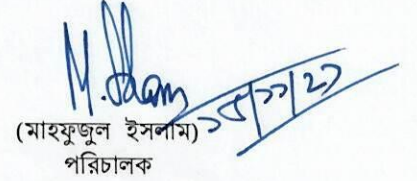 M. Islam
১৫/১১/২১
(মাহফুজুল ইসলাম)
পরিচালক